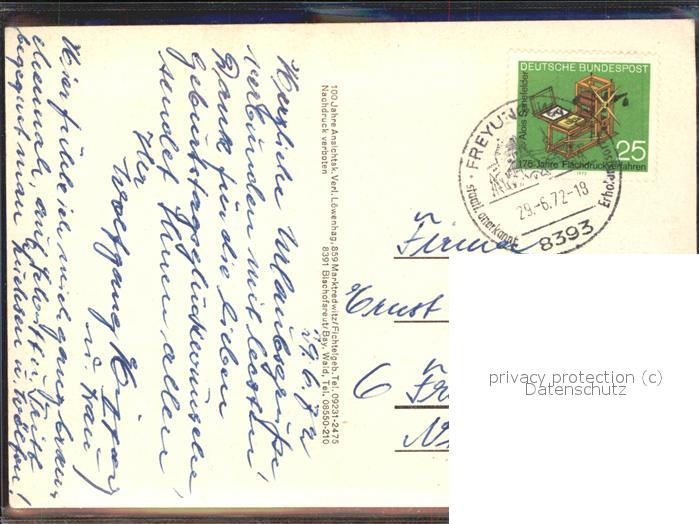 29.6.72
Herzliche Urlaubsgrüße,
verbunden mit bestem
Dank für die lieben
Geburtstagsglückwünsche,
sendet Ihnen allen
Ihr
Wolfgang
u. Frau
Hier fühle ich mich ganz
begegnet man
100 Jahre Ansichtsk. Verl. Löwenhag, 859 Marktredwitz/Fichtelgeb. Tel. 09231-2475
Nachdruck verboten 8391 Bischofsreut/Bay. Wald, Tel. 08550-210
DEUTSCHE BUNDESPOST
Alois Senefelder
175 Jahre Flachdruckverfahren
25
1972
FREYUNG
29.-6.72-18
staatl. anerkannt
Erholung
8393
Firma
Ernst
6
privacy protection (c)
Datenschutz